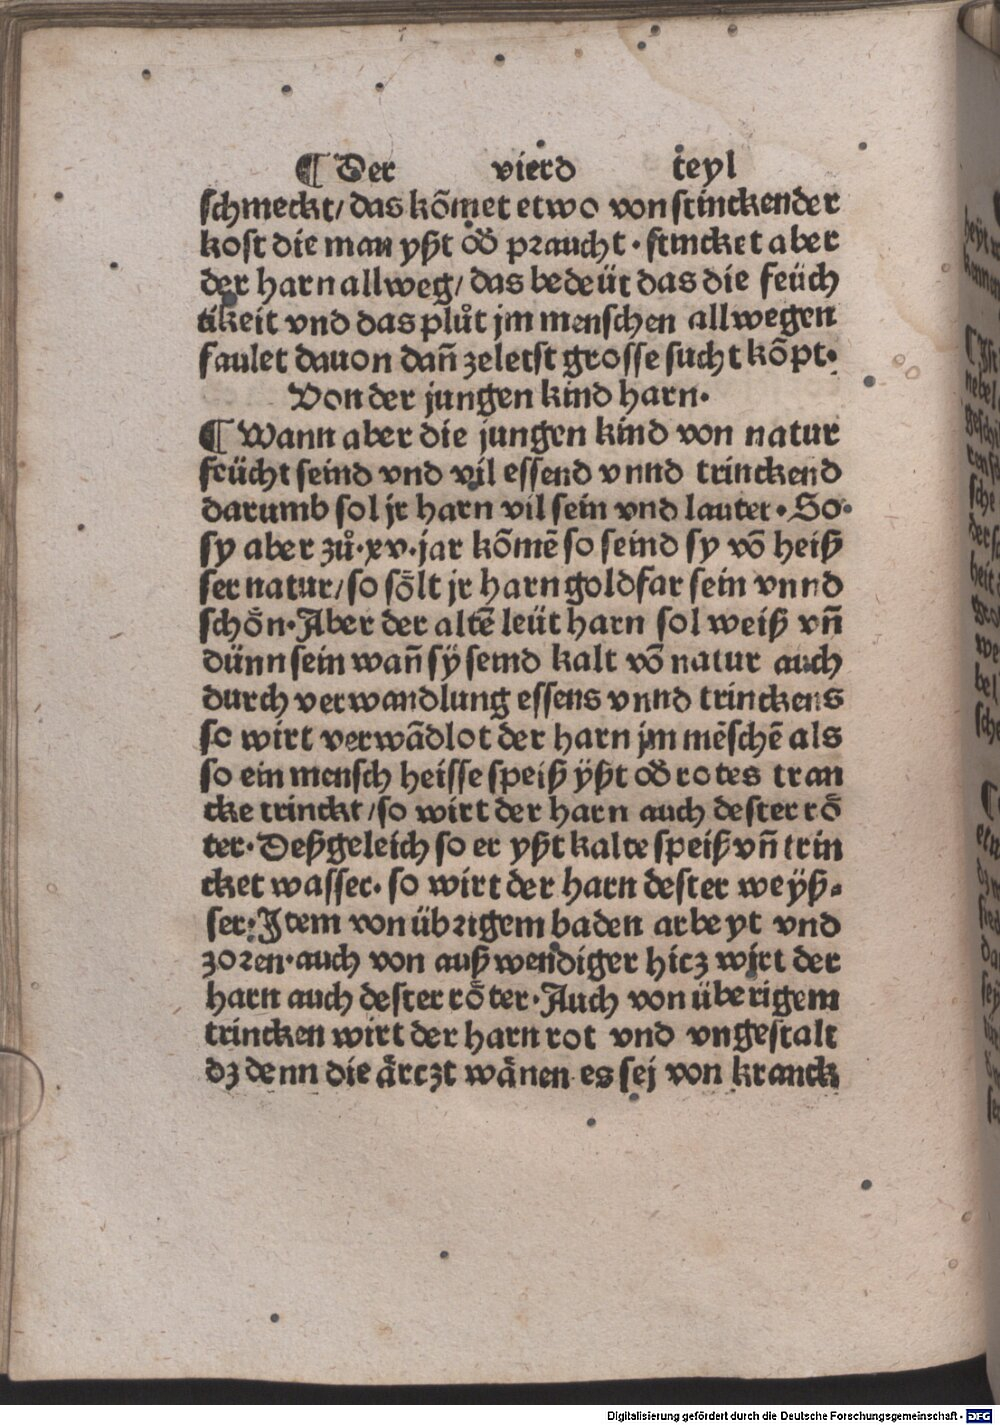 ¶ Der vierd teyl
schmeckt/ das kōmet etwo von stinckender
kost die man yßt od̄ praucht · stincket aber
der harn allweg/ das bedeüt das die feüch
tikeit vnd das plůt jm menschen allwegen
faulet dauon dañ zeletst grosse sucht kōpt·
Von der jungen kind harn·
¶ Wann aber die jungen kind von natur
feücht seind vnd vil essend vnnd trinckend
darumb sol jr harn vil sein vnd lauter · So
sy aber zů·xv·jar kōmē so seind sy vō heiß
ser natur/ so sölt jr harn goldfar sein vnnd
schön·Aber der altē leüt harn sol weiß vñ
dünn sein wañ sÿ seind kalt vō natur auch
durch verwandlung essens vnnd trinckens
so wirt verwādlot der harn jm mēschē als
so ein mensch heisse speiß ÿßt od̄ rotes tran
cke trinckt/ so wirt der harn auch dester rö
ter·Deßgeleich so er yßt kalte speiß vñ trin
cket wasser· so wirt der harn dester weÿß⸗
ser·Item von übrigem baden arbeyt vnd
zoren·auch von außwendiger hicz wirt der
harn auch dester röter·Auch von überigem
trincken wirt der harn rot vnd vngestalt
dz denn die ärczt wänen es sej von kranck
Digitalisierung gefördert durch die Deutsche Forschungsgemeinschaft - DFG